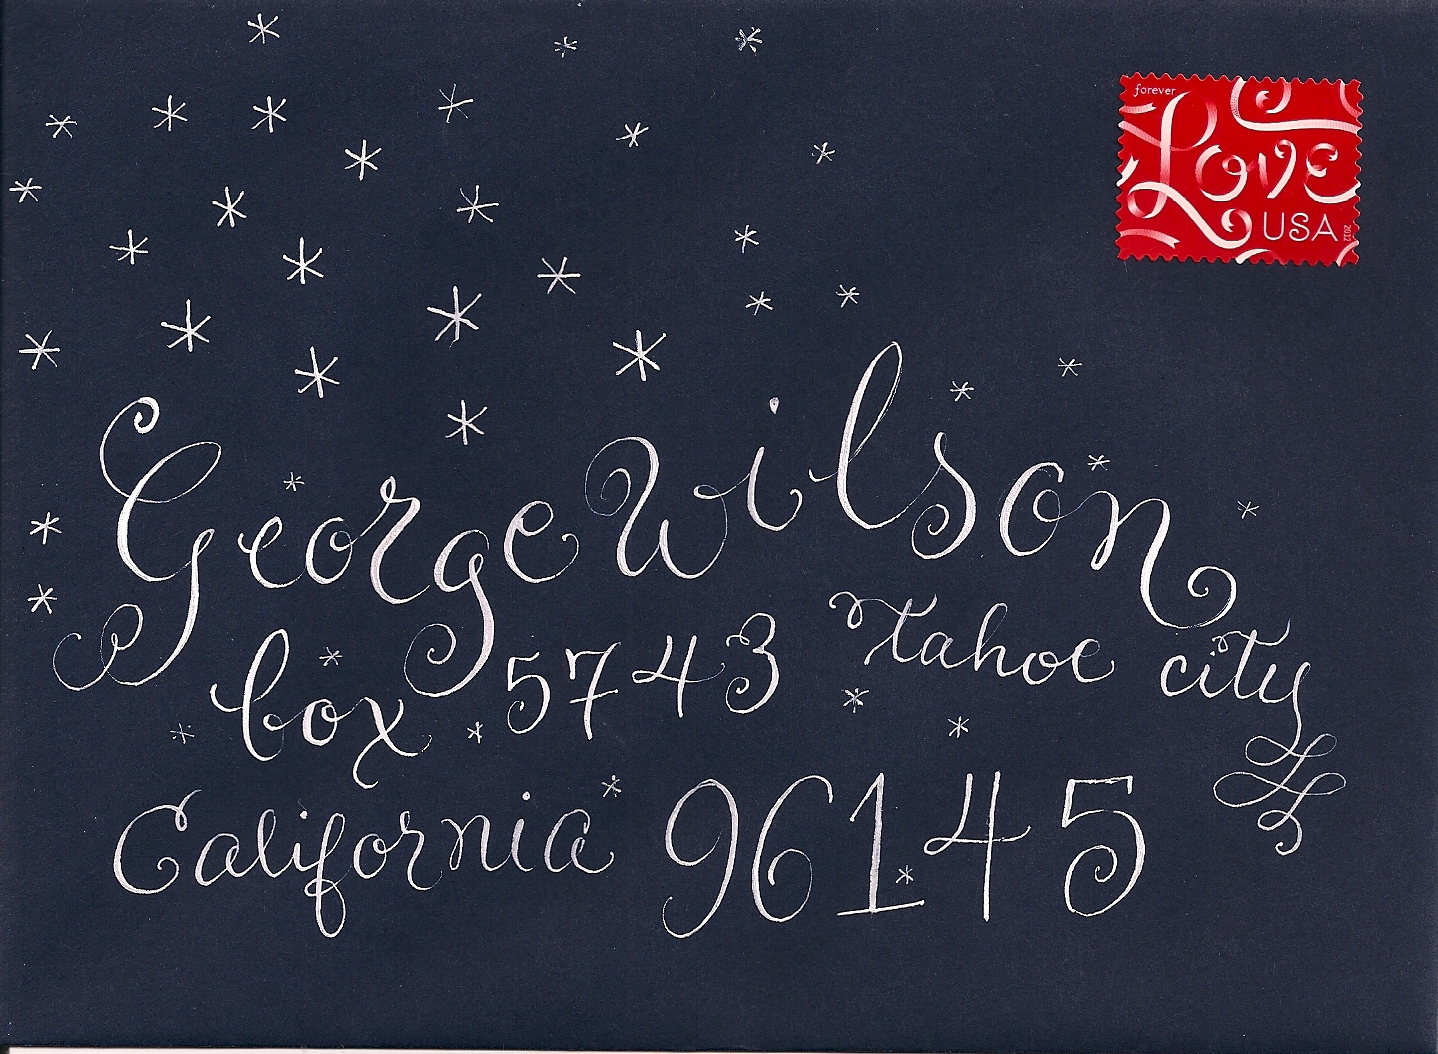 forever
Love
USA
2012
George Wilson
box 5743 Tahoe city
California 96145